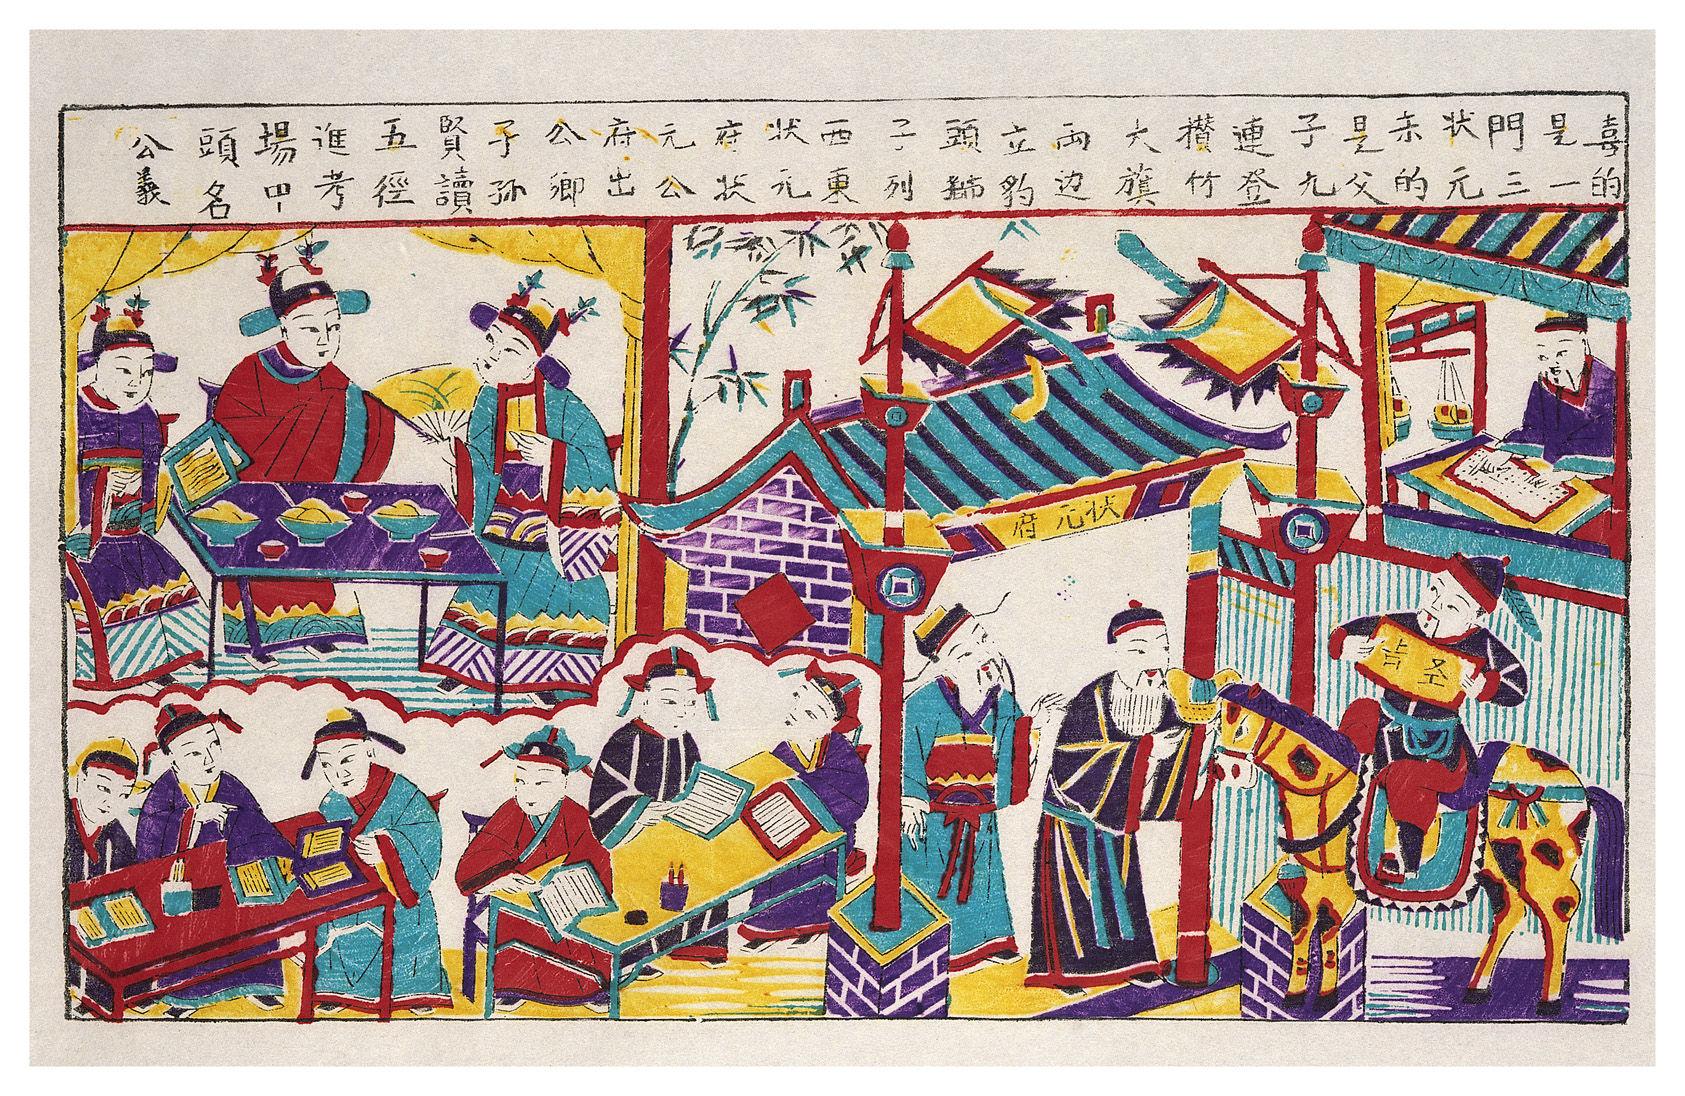 喜的
是一
門三
状元
来的
是父
子九
連登
攢竹
大旗
両边
立豹
頭獅
子列
西東
状元
府状
元公
府出
公卿
子孫
賢讀
五徑
進考
場中
頭名
公義
状元府
圣旨